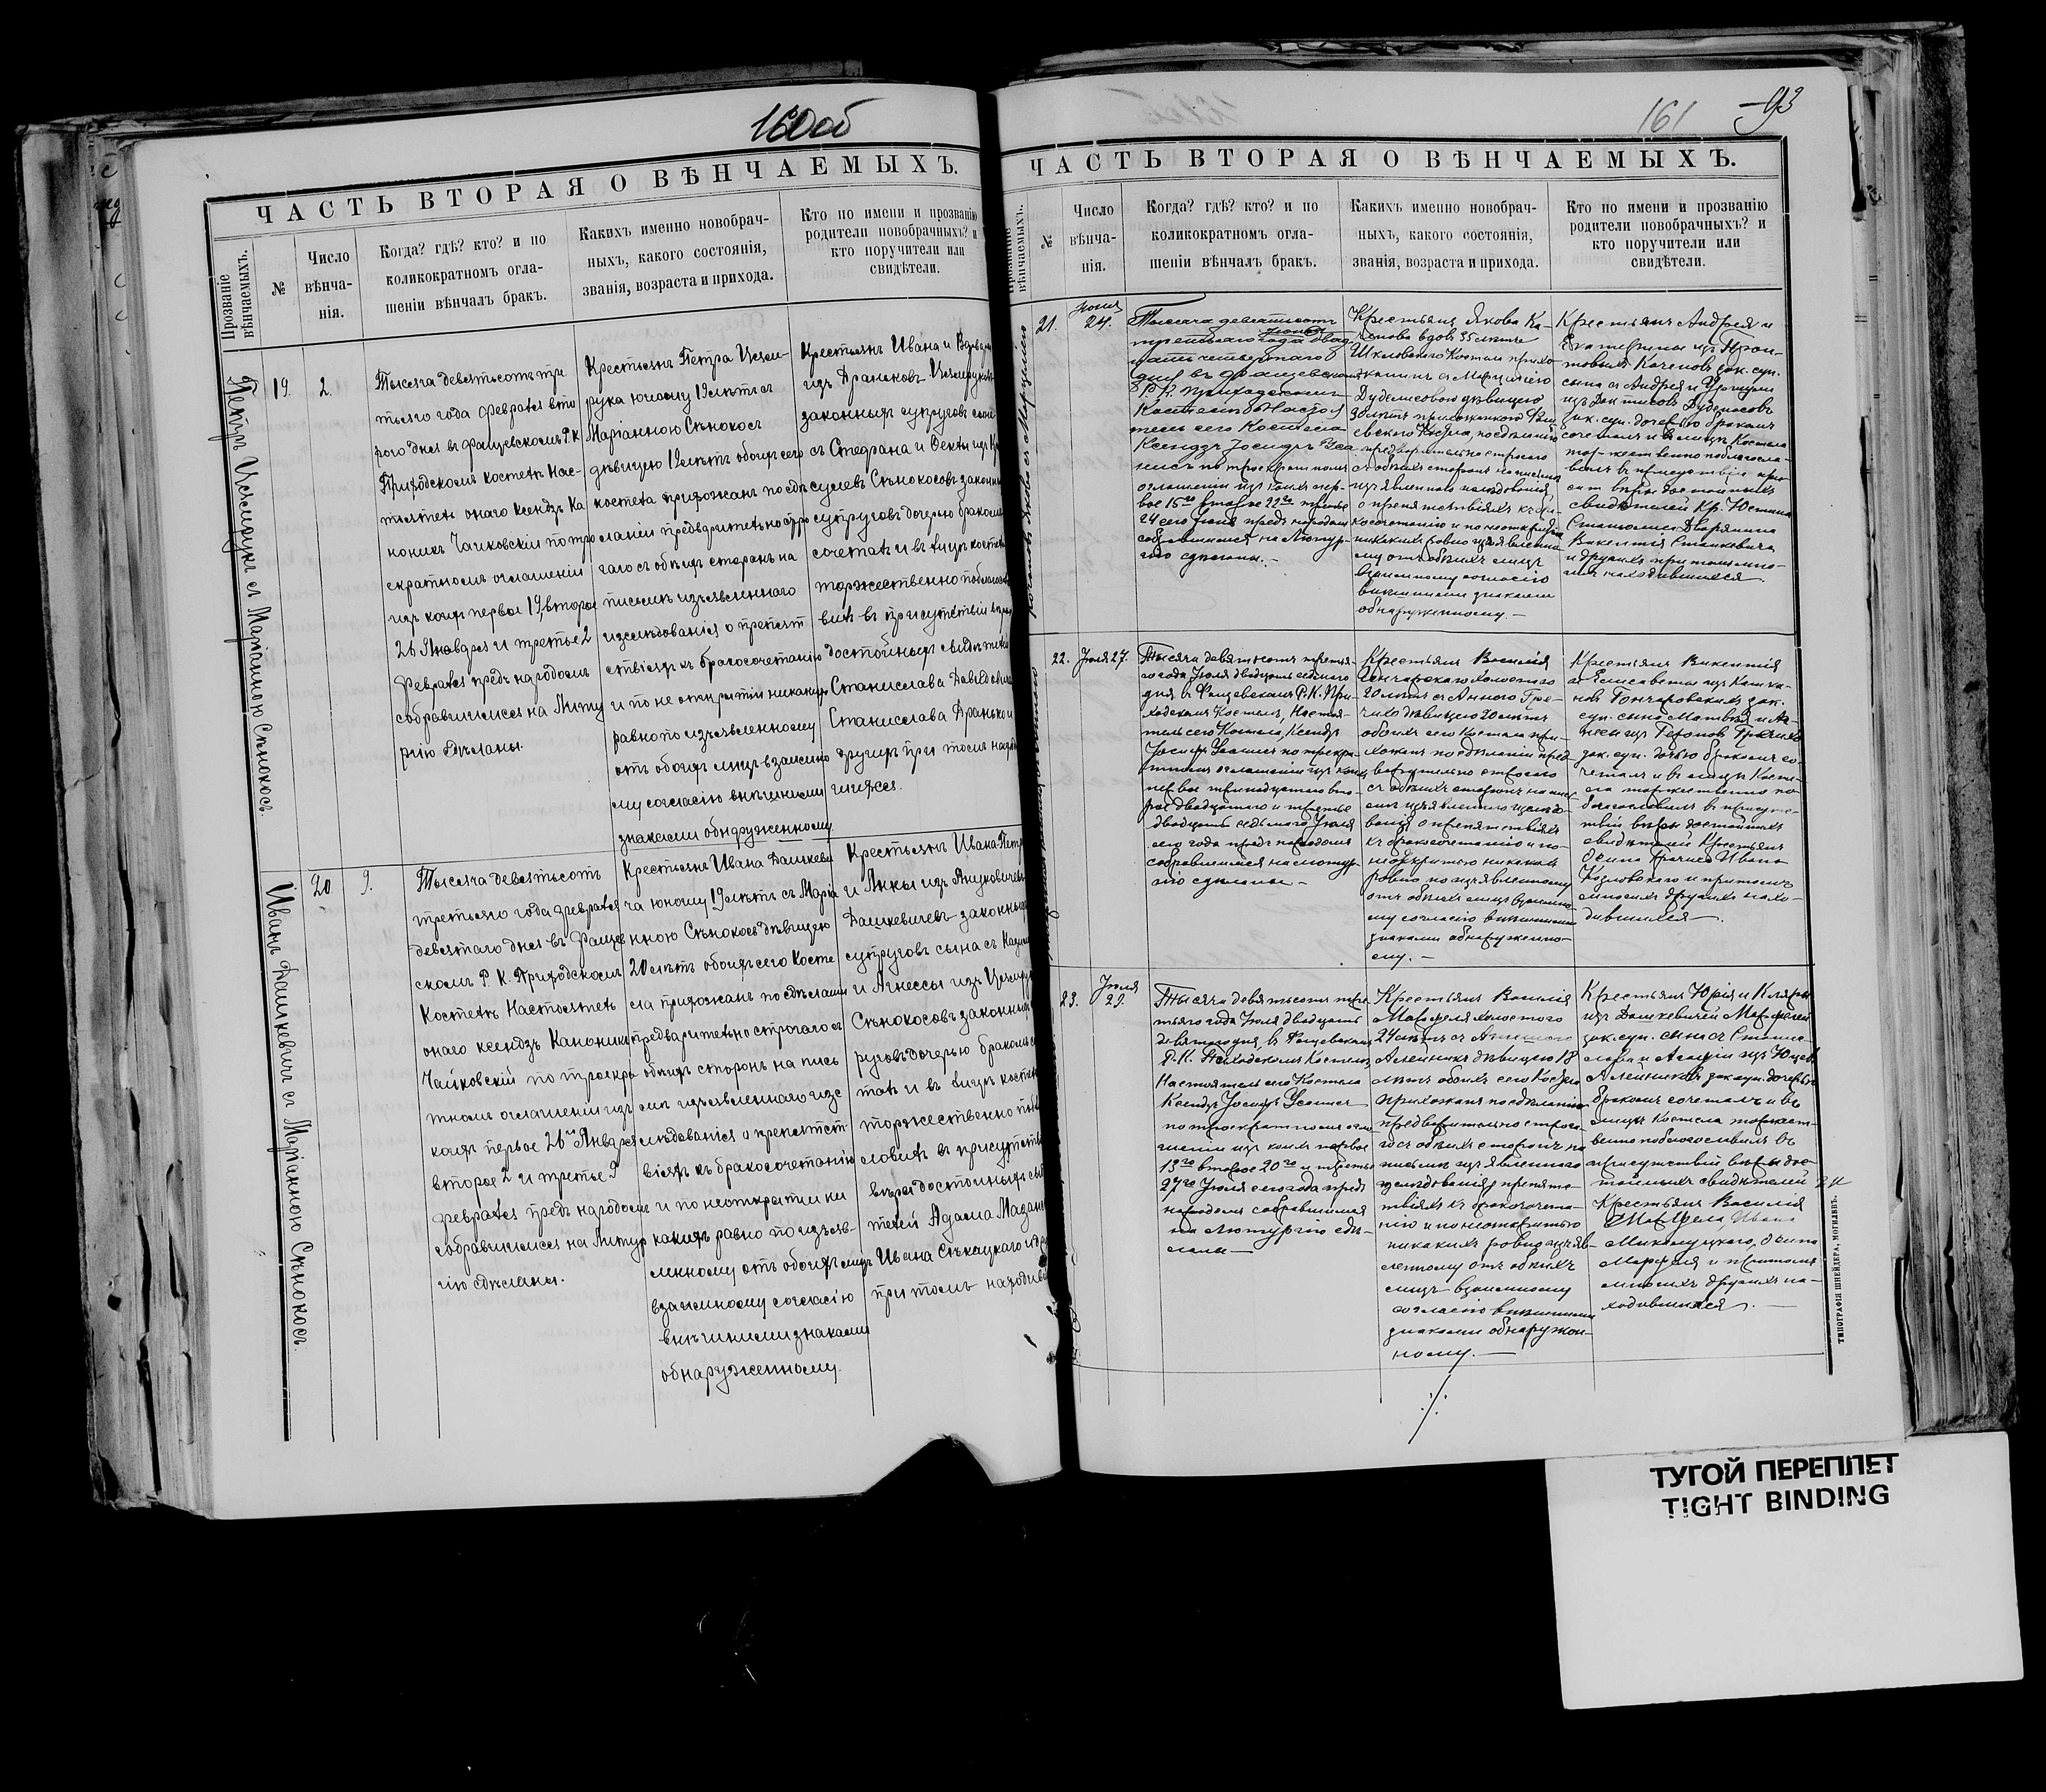 160об
ЧАСТЬ ВТОРАЯ О ВѢНЧАЕМЫХЪ.
Прозваніе вѣнчаемыхъ.
№
Число вѣнча-
нія.
Когда? гдѣ? кто? и по
коликократномъ огла-
шеніи вѣнчалъ бракъ.
Какихъ именно новобрач-
ныхъ, какого состоянія,
званія, возраста и прихода.
Кто по имени и прозванію
родители новобрачныхъ? и
кто поручители или
свидѣтели.
Петръ Цехмерукъ съ Маріанною Сѣнокосъ.
19.
2.
Тысяча девятьсотъ тре
тьяго года февраля вто
рого дня въ Фащевскомъ Р. К
Приходскомъ костелѣ Нас-
тоятель онаго Ксендзъ Ка
ноникъ Чайковскій по тро
екратномъ оглашеніи
изъ коихъ первое 19, второе
26 Января и третье 2
февраля предъ народомъ
собравшимся на Литу
ргію сдѣланы.
Крестьянъ Петра Цехме
рука юношу 19 лѣтъ съ
Маріанною Сѣнокосъ
дѣвицею 19 лѣтъ обоихъ сего
костела прихожанъ по сдѣ
ланіи предварительно стро
гаго съ обѣихъ сторонъ на
письмѣ изъявленнаго
изслѣдованія о препят
ствіяхъ къ бракосочетанію
и по не открытіи никакихъ
равно по изъявленному
отъ обоихъ лицъ взаимно
му согласію внѣшними
знаками обнаруженному.
Крестьянъ Ивана и
изъ Драньковъ
законныхъ супруговъ сына
съ Стефана и Феклы изъ
Сѣнокосовъ законн
супруговъ дочерью бракомъ
сочеталъ и въ лицѣ костела
торжественно поблагосло
вилъ въ присутствіи вѣры
достойныхъ свидѣтелей
Станислава
Станислава Дранько и
другихъ при томъ находи
шихся.
Иванъ Дашкевичъ съ Маріанною Сѣнокосъ.
20
9.
Тысяча девятьсотъ
третьяго года февраля
девятаго дня въ Фащев
скомъ Р. К. Приходскомъ
Костелѣ Настоятель
онаго ксендзъ Каноникъ
Чайковскій по троекра
тномъ оглашеніи изъ
коихъ первое 26го Января
второе 2 и третье 9
февраля предъ народомъ
собравшимся на Литур
гію сдѣланы.
Крестьянъ Ивана Дашкеви
ча юношу 19 лѣтъ съ Маріа
нною Сѣнокосъ дѣвицею
20 лѣтъ обоихъ сего Косте
ла прихожанъ по сдѣланіи
предварительно строгаго съ
обѣихъ сторонъ на пись
мѣ изъявленнаго изс
лѣдованія о препятст
віяхъ къ бракосочетанію
и по неоткрытіи ни
какихъ равно по изъяв-
ленному отъ обоихъ лицъ
взаимному согласію
внѣшними знаками
обнаруженному.
Крестьянъ Ивана-Петра
и Анны изъ Януковичевъ
Дашкевичевъ законныхъ
супруговъ сына съ
и Агнессы изъ
Сѣнокосовъ законныхъ
руговъ дочерью бракомъ
талъ и въ лицѣ костела
торжественно побла
словилъ въ присутств
вѣры достойныхъ сви
телей Адама
Ивана и др
при томъ находив
161
93
ЧАСТЬ ВТОРАЯ О ВѢНЧАЕМЫХЪ.
Прозваніе вѣнчаемыхъ.
№
Число
вѣнча-
нія.
Когда? гдѣ? кто? и по
коликократномъ огла-
шеніи вѣнчалъ бракъ.
Какихъ именно новобрач-
ныхъ, какого состоянія,
званія, возраста и прихода.
Кто по имени и прозванію
родители новобрачныхъ? и
кто поручители или
свидѣтели.
21.
Іюня
24.
Тысяча девятисотъ
Іюня
третьяго года двад
цать четвертаго
дня въ Фащевскомъ
Р. К. Приходскомъ
Костелѣ Настоя
тель сего Костела
Ксендзъ Іосифъ
по троекратномъ
оглашеніи изъ коихъ пер-
вое 15го второе 22го третье
24 сего Іюня предъ народомъ
собравшимся на Литур-
гію сдѣланы.-
Крестьянъ Якова Ка-
ченова вдов. 35 лѣтъ
Шкловскаго Костела прихо-
жанинъ съ
дѣвицею
прихожанкою Фа-
щевского Костела, по сдѣланію
предварительно строгаго
съ обѣихъ сторонъ на письмѣ
изъявленнаго изслѣдованія,
о препятствіяхъ къ бра-
косочетанію и по неоткрытію
никакихъ ровно изъявленно
му отъ обоихъ лицъ
взаимному согласію
внѣшними знаками
обнаруженному.-
Крестьянъ Андрея и
Екатерины изъ
зак. суп.
сына съ Андрея и
изъ
зак. суп. дочерью бракомъ
сочеталъ и въ лицѣ Костела
тор-жественно поблагосло-
вилъ въ присутствіи
вѣры достойныхъ
свидѣтелей Кр. Юстина
Дворянина
Викентія Станкевича
и другихъ притомъ мно-
гихъ находившихся.
22.
Іюля 27.
Тысяча девятьсотъ третья-
го года Іюля двадцать седьмого
дня в Фащевскомъ Р. К. При-
ходскомъ Костелѣ, Настоя-
тель сего Костела, Ксендзъ
Іосифъ по троекра-
тномъ оглашеніи изъ коихъ
первое тринадцатаго вто-
рое двадцатаго и третье
двадцать седьмаго Іюля
сего года предъ народомъ
собравшимся на литур-
гію сдѣланы -
Крестьянъ Василія
Гончаровскаго холостого
20 лѣтъ съ Анною Гра-
чихо дѣвицею 20 лѣтъ
обоихъ сего Костела при-
хожанъ по сдѣланіи пред-
варительно строгаго
съ обѣихъ сторонъ на пись-
мѣ изъявленнаго изслѣдо-
ванія о препятствіяхъ
къ бракосочетанію и по
неоткрытію никакихъ
ровно по изъявленному
отъ обоихъ лицъ взаимно-
му согласію внѣшними
знаками обнаруженно-
му. -
Крестьянъ Викентія
и Елисаветы изъ
Гончаровскихъ зак.
суп. сына Матвѣя и Аг-
неси изъ
зак. суп. дочью бракомъ со-
четалъ и въ лицѣ Косте-
ла торжественно по-
благословилъ въ присутс-
твіи вѣры достойныхъ
свидѣтелей Крестьянъ
Осипа Ивана
Козловскаго и притомъ
многихъ другихъ нахо-
дившихся.
23.
Іюля
29.
Тысяча девятьсотъ тре-
тьяго года Іюля двадцать
девятаго дня, въ Фащевскомъ
Р. К. Приходскомъ Костелѣ,
Настоятель сего Костела
Ксендзъ Іосифъ
по троекратномъ огла-
шеніи изъ коихъ первое
13го второе 20го и третье
27го Іюля сего года предъ
народомъ собравшимся
на Литургію сдѣ-
ланы-
Крестьянъ Василія
холостого
24 лѣтъ съ
Алейникъ дѣвицею 18
лѣтъ обоихъ сего Костела
прихожанъ по сдѣланію
предварительно строга-
го съ обѣихъ сторонъ на
письмѣ изъявленнаго
изслѣдованія о препятс-
твіяхъ къ бракосочета-
нію и по неоткрытію
никакихъ ровно изъяв-
ленному отъ обоихъ
лицъ взаимному
согласію внѣшними
знаками обнаружен-
ному. -
Крестьянъ Юрія и Клары
изъ Дашкевичей
зак. суп. сына съ Станис-
лава и изъ
Алейниковъ зак. суп. дочерью
бракомъ сочеталъ и въ
лицѣ Костела торжест-
венно поблагословилъ въ
присутствіи вѣры дос-
тойныхъ свидѣтелей
Крестьянъ Василія
Ивана
Осипа
и притомъ
многихъ другихъ на-
ходившихся.
ТИПОГРАФІЯ ШНЕЙДЕРА, МОГИЛЕВЪ.
ТУГОЙ ПЕРЕПЛЕТ
TIGHT BINDING